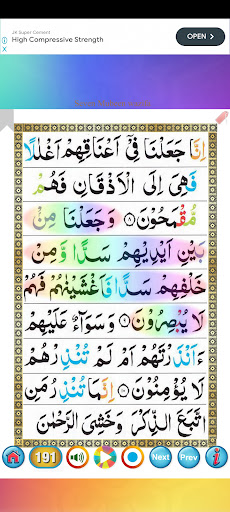 JK Super Cement
High Compressive Strength
OPEN >
اِنَّا جَعَلْنَا فِیْۤ اَعْنَاقِهِمْ اَغْلٰلًا
فَهِیَ اِلَی الْاَذْقَانِ فَهُمْ
مُّقْمَحُوْنَ ۝۸ وَجَعَلْنَا مِنْۢ
بَیْنِ اَیْدِیْهِمْ سَدًّا وَّمِنْ
خَلْفِهِمْ سَدًّا فَاَغْشَیْنٰهُمْ فَهُمْ
لَا یُبْصِرُوْنَ ۝۹ وَسَوَآءٌ عَلَیْهِمْ
ءَاَنْذَرْتَهُمْ اَمْ لَمْ تُنْذِرْهُمْ
لَا یُؤْمِنُوْنَ ۝۱۰ اِنَّمَا تُنْذِرُ مَنِ
اتَّبَعَ الذِّكْرَ وَخَشِیَ الرَّحْمٰنَ
191
Next
Prev
i